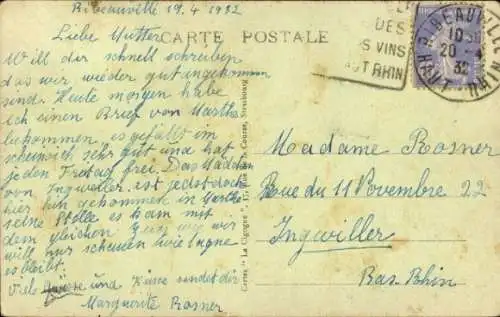 Ribeauvillé 19.4 1932
Liebe Mutter
CARTE POSTALE
Will dir schnell schreiben
das wir wieder gut angekommen
sind. Heute morgen habe
ich einen Brief von Martha
bekommen, es gefällt im
scheinich sehr gut und hat
jeden Freitag frei. Das Mädchen
von Ingweiler ist jedst doch
hier hin gekommen in
seine Stelle es kam mit
dem gleichen Zug wie wir
will nur schauen wie lange
es bleibt.
Viels Grüsse und Küsse sendet dir
Marguerite Rosner
DES
VINS
RIBEAUVILLE
20 - 4
32
HAUT RHIN
Madame Rosner
Rue du 11 Novembre 22
Ingwiller
Bas-Rhin
"La Cigogne", Strasbourg